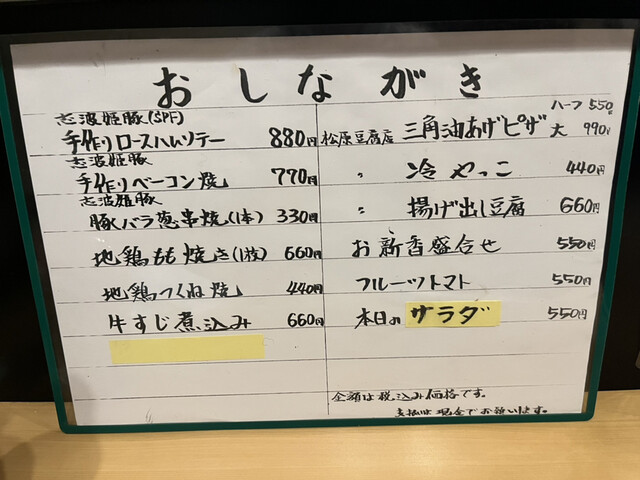 おしながき
志波姫豚(SPF)
手作りロースハムソテー 880円
志波姫豚
手作りベーコン焼 770円
志波姫豚
豚バラ葱串焼(1本) 330円
地鶏もも焼き(1枚) 660円
地鶏つくね焼 440円
牛すじ煮込み 660円
ハーフ 550円
松原豆腐店 三角油あげピザ 大 990円
〃 冷やっこ 440円
〃 揚げ出し豆腐 660円
お新香盛合せ 550円
フルーツトマト 550円
本日のサラダ 550円
金額は税込み価格です。
支払は現金でお願います。